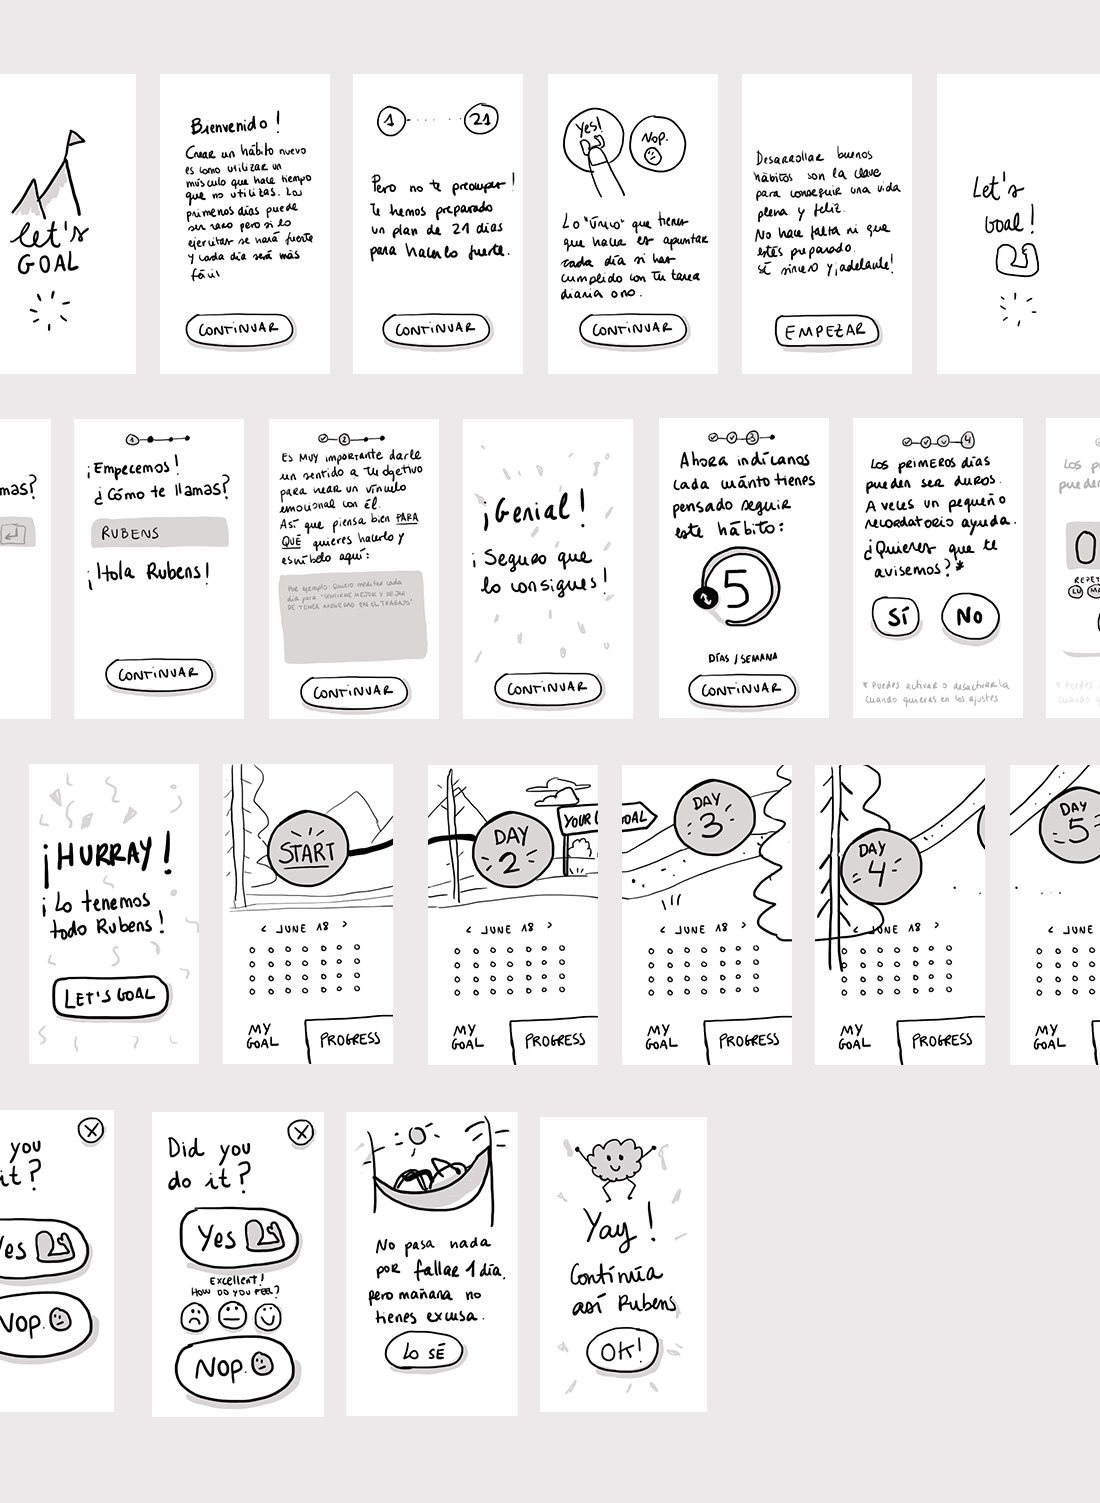 let's
GOAL
Bienvenido!
Crear un hábito nuevo
es como utilizar un
músculo que hace tiempo
que no utilizas. Los
primeros días puede
ser raro pero si lo
ejercitas se hará fuerte
y cada día será más
fácil
CONTINUAR
1
21
Pero no te preocupes!
Te hemos preparado
un plan de 21 días
para hacerlo fuerte.
CONTINUAR
Yes!
Nop.
Lo "único" que tienes
que hacer es apuntar
cada día si has
cumplido con tu tarea
diaria o no.
CONTINUAR
Desarrollar buenos
hábitos son la clave
para conseguir una vida
plena y feliz.
No hace falta ni que
estés preparado.
sé sincero y ¡adelante!
EMPEZAR
Let's
Goal!
mas?
1
¡Empecemos!
¿Cómo te llamas?
RUBENS
¡Hola Rubens!
CONTINUAR
2
Es MUY importante darle
un sentido a tu objetivo
para crear un vínculo
emocional con él.
Así que piensa bien PARA
QUÉ quieres hacerlo y
escríbelo aquí:
Por ejemplo: Quiero meditar cada
día para "SENTIRME MEJOR Y DEJAR
DE TENER ANSIEDAD EN EL TRABAJO"
CONTINUAR
¡Genial!
¡Seguro que
lo consigues!
CONTINUAR
3
Ahora indícanos
cada cuánto tienes
pensado seguir
este hábito:
5
DÍAS / SEMANA
CONTINUAR
4
Los primeros días
pueden ser duros.
A veces un pequeño
recordatorio ayuda.
¿Quieres que te
avisemos?*
SÍ
NO
* Puedes activar o desactivarla
cuando quieras en los ajustes
Los p
pueden
0
REPET
LU MA
* Puedes
cuando q
¡HURRAY!
¡Lo tenemos
todo Rubens!
LET'S GOAL
START
< JUNE 18 >
MY
GOAL
PROGRESS
DAY
2
YOUR G
< JUNE 18 >
MY
GOAL
PROGRESS
OAL
DAY
3
< JUNE 18 >
MY
GOAL
PROGRESS
DAY
4
< JUNE 18 >
MY
GOAL
PROGRESS
DAY
5
< JUNE
MY
GOAL
you
it?
Yes
Nop.
Did you
do it?
Yes
Excellent!
How do you feel?
Nop.
No pasa nada
por fallar 1 día.
pero mañana no
tienes excusa.
LO SÉ
Yay!
Continúa
así Rubens
OK!